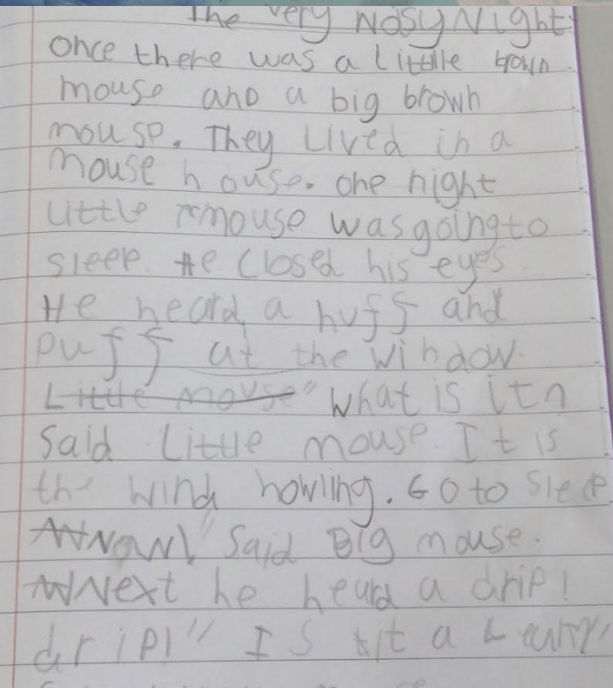 The very NosyNight
Once there was a little brown
mouse and a big brown
mouse. They Lived in a
mouse house. One night
Little mouse was going to
sleep. He closed his eyes.
He heard a huff and
puff at the window.
Little mouse "What is it"
Said Little mouse. It is
the wind howling. Go to sleep
Now!" Said Big mouse.
Next he heard a drip!
drip! " Is it a